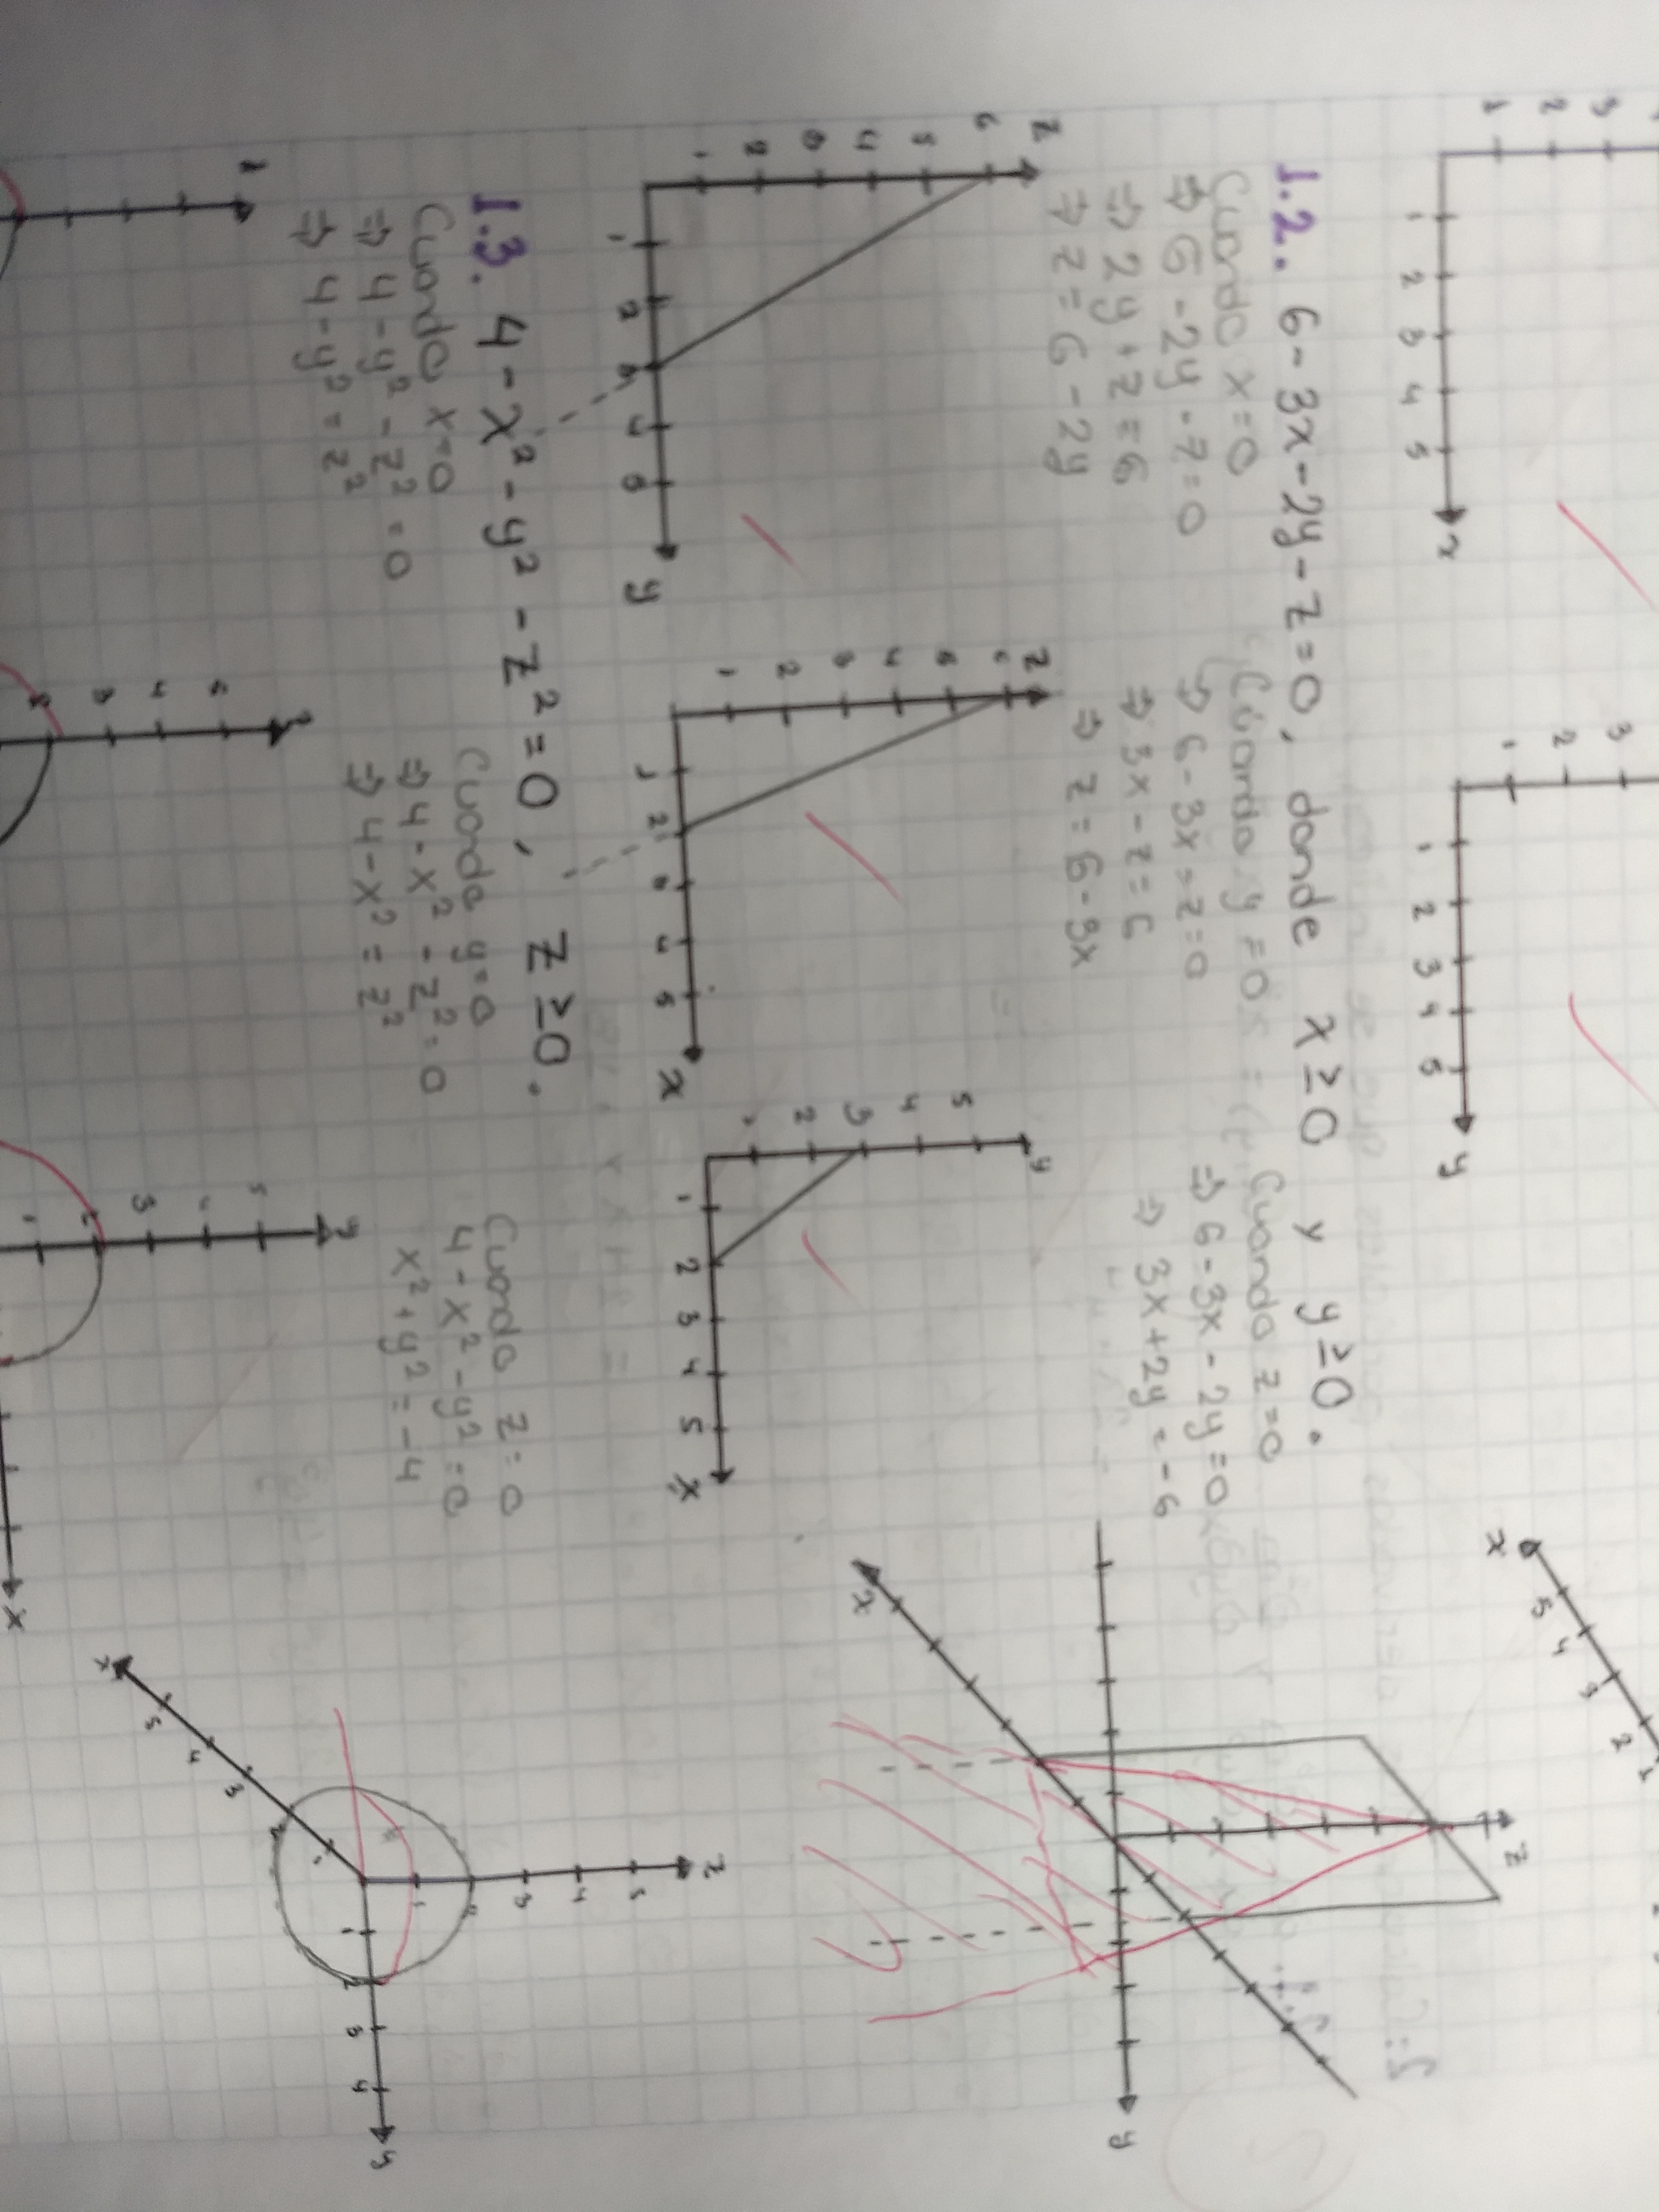 3
2
1
1 2 3 4 5 x
3
2
1
1 2 3 4 5 y
1
2
3
4
5
x
1.2. 6 - 3x - 2y - z = 0, donde x ≥ 0 y y ≥ 0.
Cuando x = 0
⇒ 6 - 2y - z = 0
⇒ 2y + z = 6
⇒ z = 6 - 2y
Cuando y = 0
⇒ 6 - 3x - z = 0
⇒ 3x - z = 6
⇒ z = 6 - 3x
Cuando z = 0
⇒ 6 - 3x - 2y = 0
⇒ 3x + 2y = -6
z
y
x
z
6
5
4
3
2
1
1 2 3 4 5 y
z
6
5
4
3
2
1
1 2 3 4 5 x
y
5
4
3
2
1
1 2 3 4 5 x
1.3. 4 - x² - y² - z² = 0, z ≥ 0.
Cuando x = 0
⇒ 4 - y² - z² = 0
⇒ 4 - y² = z²
Cuando y = 0
⇒ 4 - x² - z² = 0
⇒ 4 - x² = z²
Cuando z = 0
4 - x² - y² = 0
x² + y² = -4
z
5
4
3
2
1
1 2 3 4 y
1
2
3
4
5
x
z
z
5
4
3
2
y
5
4
3
2
1
x